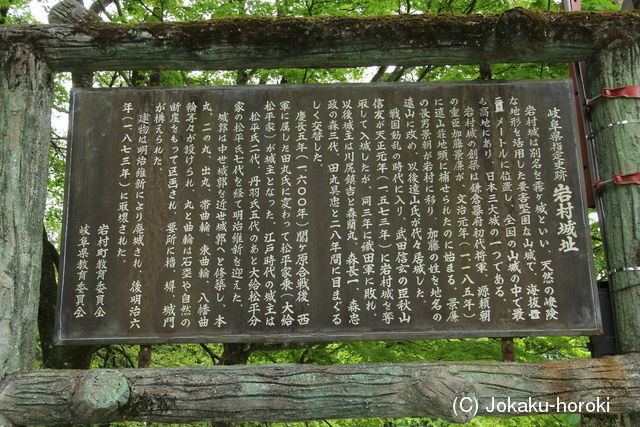 岐阜県指定史跡 岩村城址
岩村城は別名を霧ヶ城といい、天然の峻険
な地形を活用した要害堅固な山城で、海抜
メートルに位置し、全国の山城の中で最
も高地にあり、日本三大山城の一つである。
岩村城の創築は、鎌倉幕府初代将軍、源頼朝
の重臣加藤景廉が、文治元年（一一八五年）
に遠山荘地頭に補せられたのに始まる。景廉
の長男景朝が岩村に移り、加藤の姓を地名の
遠山に改め、以後遠山氏が代々居城した。
戦国動乱の時代に入り、武田信玄の臣秋山
信友が天正元年（一五七三年）に岩村城を奪
取して入城したが、同三年に織田軍に敗れ、
以後城主は川尻鎮吉と森蘭丸、森長一、森忠
政の森三代、田丸具忠と二八年間に目まぐる
しく交遷した。
慶長五年（一六〇〇年）関ヶ原合戦後、西
軍に属した田丸氏に変わって松平家乗（大給
松平家）が城主となった。江戸時代の城主は
松平氏二代、丹羽氏五代のあと大給松平分
家の松平氏七代を経て明治維新を迎えた。
城郭は中世城郭を近世城郭へと修築し、本
丸、二の丸、出丸、帯曲輪、東曲輪、八幡曲
輪等々が設けられ、丸と曲輪は石塁や自然の
断崖をもって区画され、要所に櫓、塀、城門
が構えられた。
建物は明治維新により廃城され、後明治六
年（一八七三年）に取壊された。
岩村町教育委員会
岐阜県教育委員会
(C) Jokaku-horoki